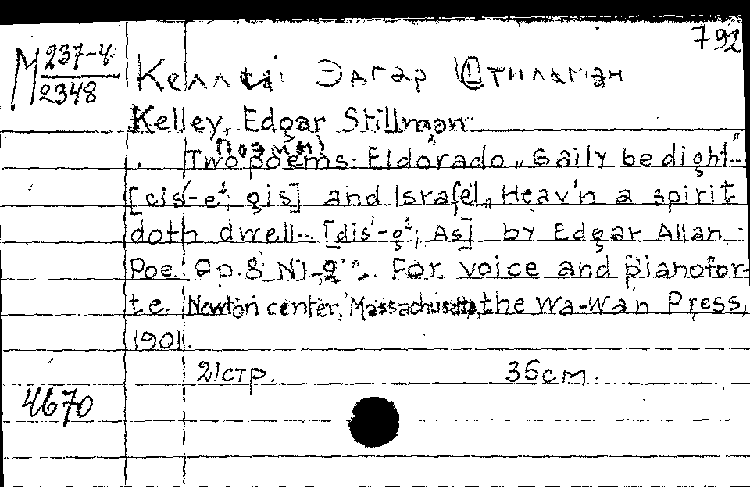 792
М 237-4
2348
Келлеі Эдгар Стиллман
Kelley, Edgar Stillman
(Поэмы)
Two poems: Eldorado „Gaily bedight..."
[cis'-e²; gis] and Israfel „Heav'n a spirit
doth dwell... [dis'-g²; As] by Edgar Allan
Poe. Op. 8 N1-2. For voice and pianofor-
te. Newton center, Massachusetts, the Wa-Wan Press,
1901.
21 стр. 36 cm.
4670